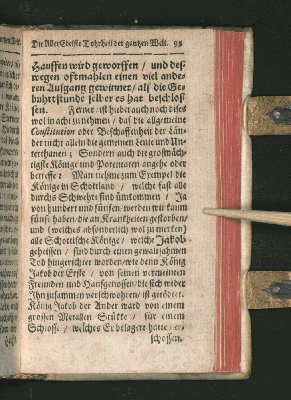 Die Aller Edelste Tohrheit der gantzen Welt. 95
Hauffen würd geworffen / und deß-
wegen oftmahlen einen viel ande-
ren Außgang gewinnet / alß die Ge-
buhrtstunde selber es hat beschlos-
sen. Ferner / ist hieber auch noch dises
wol in acht zunehmen / daß die allgemeine
Constitution oder Beschaffenheit der Län-
der nicht allein die gemeinen Leute und Un-
terthanen; Sondern auch die großmäch-
tigste Könige und Potentaten angehe oder
betreffe: Man nehme zum Exempel die
Könige in Schottland / welche fast alle
durchs Schwehrt sind ümkommen / Ja
von hundert und fünfen / werden wir kaum
fünfe haben / die an Krankheiten gestorben /
und (welches absonderlich wol zu merken)
alle Schottische Könige / welche Jakob
geheissen / sind durch einen gewaltsahmen
Tod hingerichtet worden / wie denn König
Jakob der Erste / von seinen verweinten
Freunden und Haußgenossen / die sich wider
Ihn zusammen verschwohren / ist getödtet.
König Jakob der Ander ward von einem
grossen Metallen Stükke / für einem
Schlosse / welches Er belagert hatte / er-
schossen.